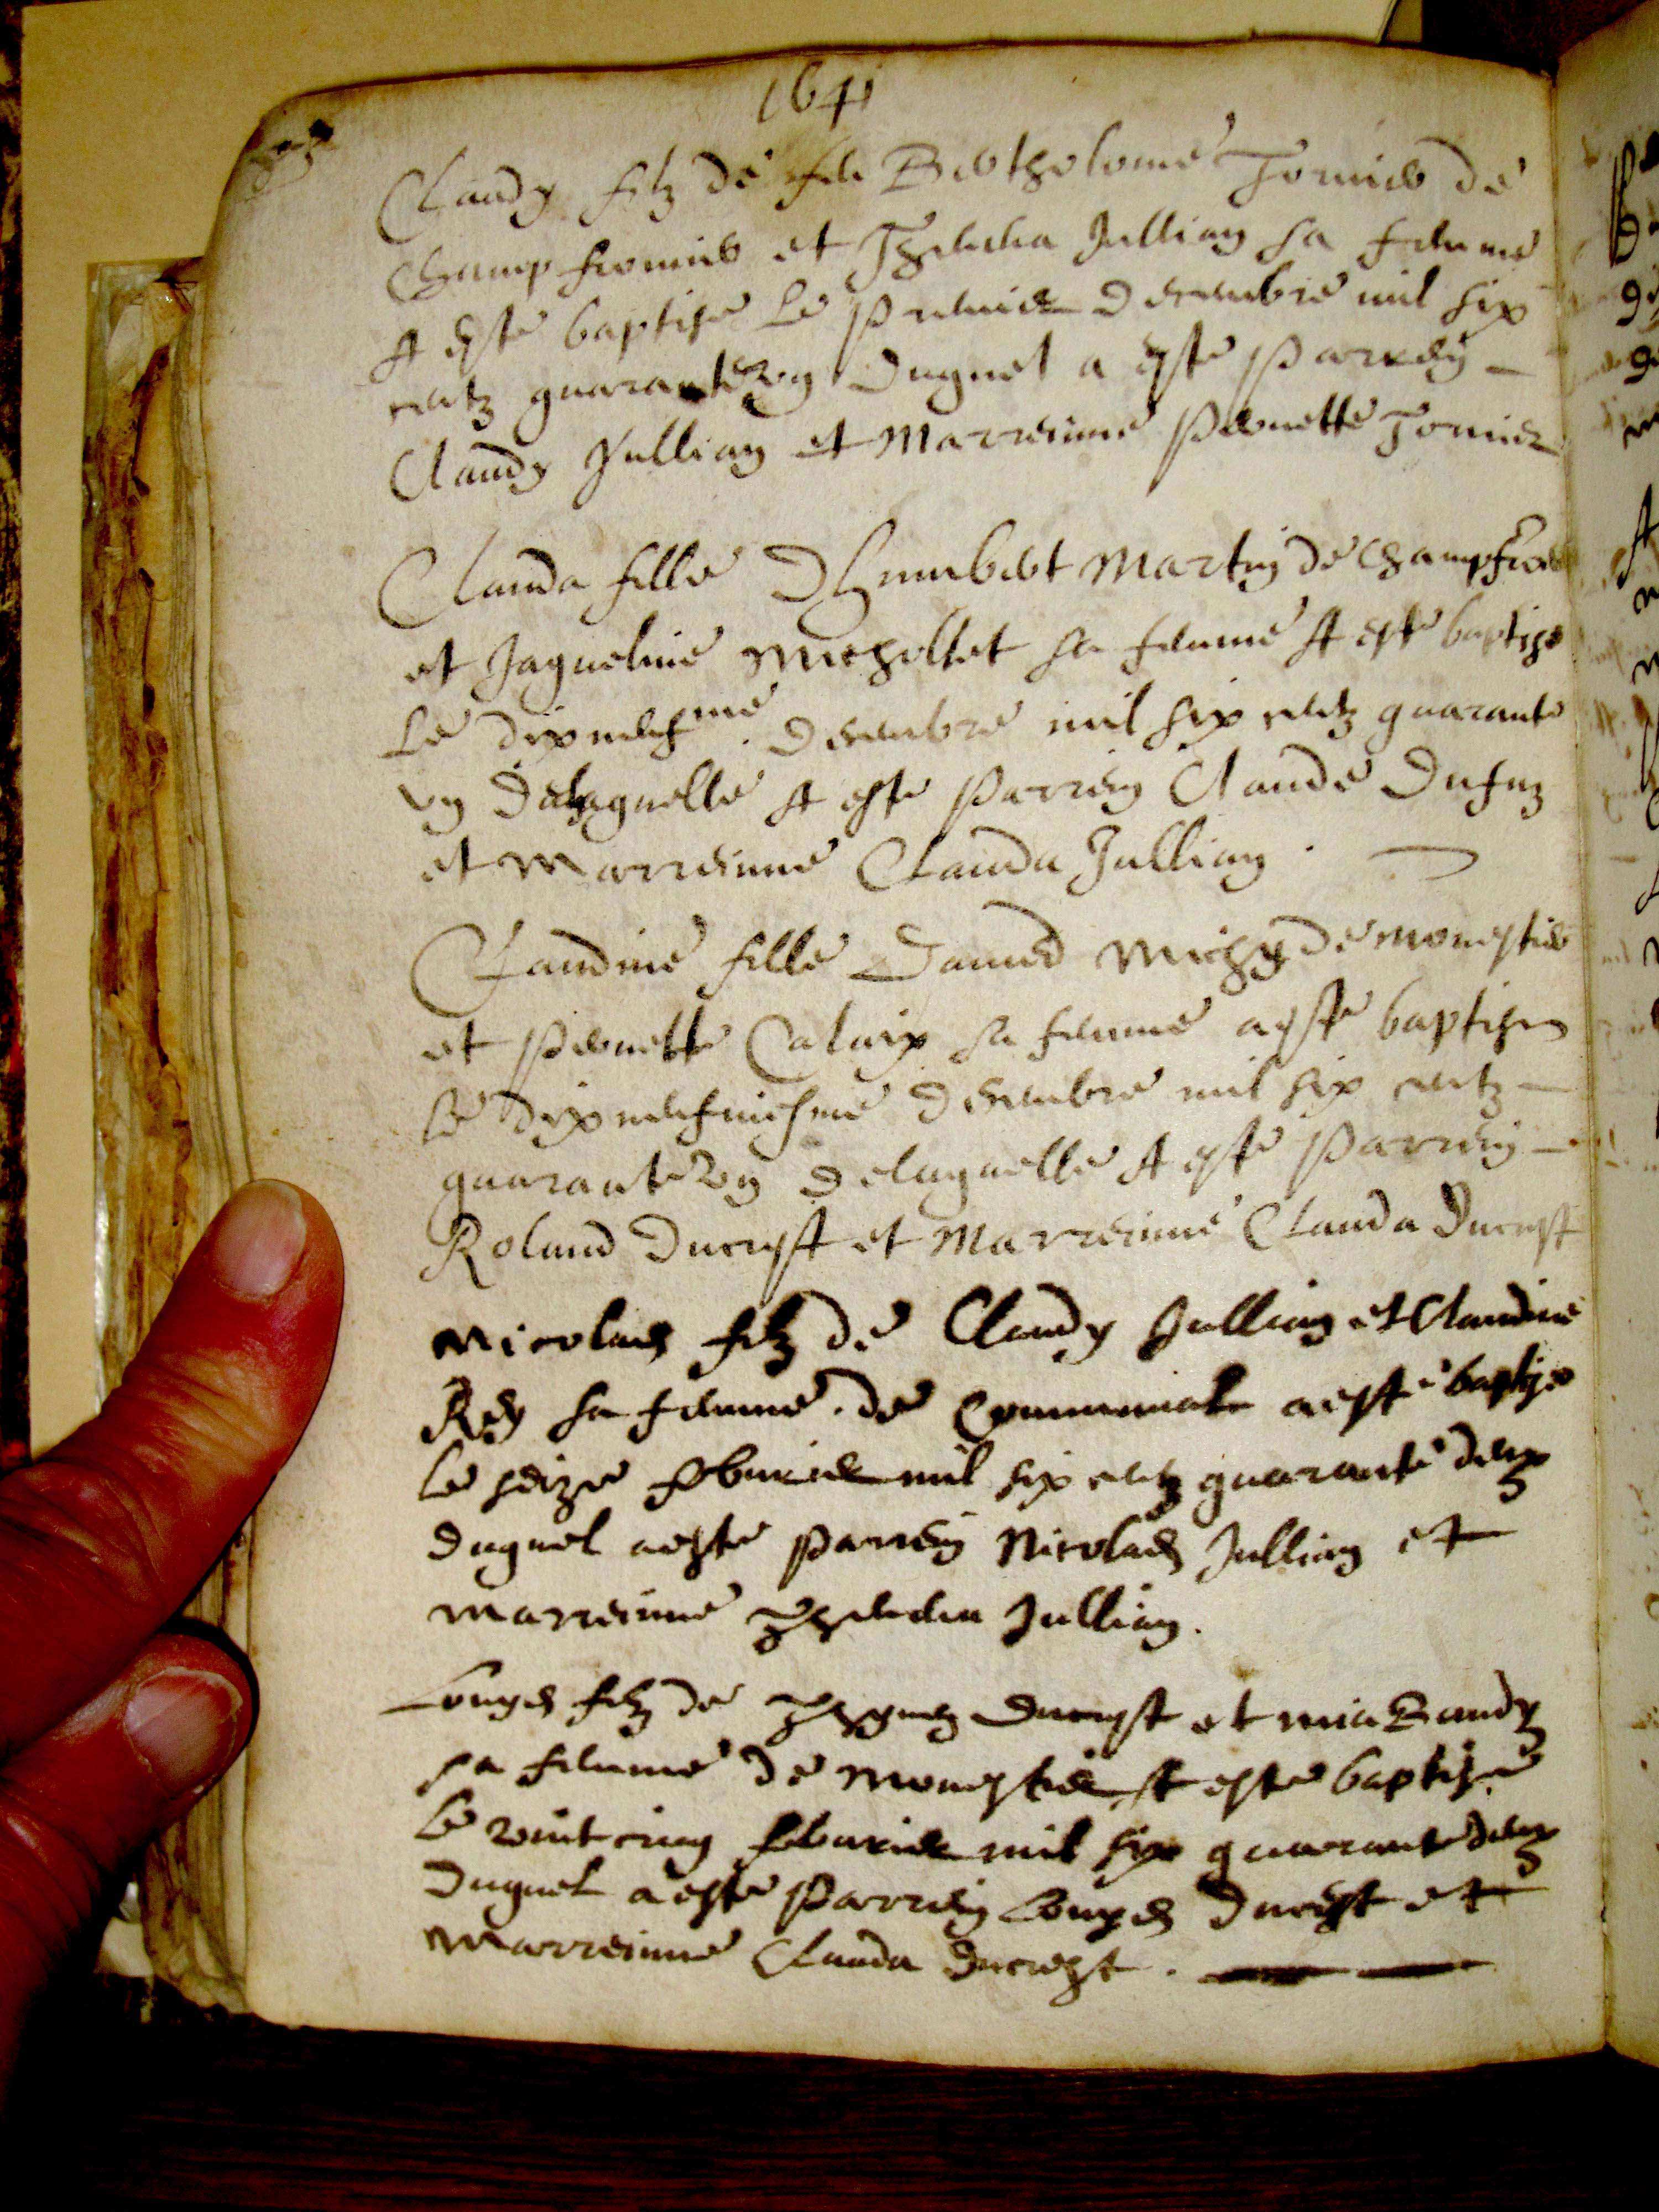 1641
Claudy filz de feu Bertholomé Tornier de
Champfromier et Thevena Jullian sa femme
A esté baptisé le premier Decembre mil six
centz quarante vng Duquel a esté parrein
Claudy Jullian et Marreinne Pernette Tornier
Clauda fille D'Humbert Martin de Champfro
et Jaqueline Michollet sa femme A esté baptisé
Le dixneufme Decembre mil six centz quarante
vng Delaquelle A esté Parrein Claude
et Marreinne Clauda Jullian .
Claudine fille David de monestier
et Pernette sa femme a esté baptisee
le dixneufuiesme Decembre mil six centz
quarante vng Delaquelle A esté Parrein
Roland Ducrest et Marreinne Clauda Ducrest
Nicolas filz de Claudy Jullian et Claudine
Rey sa femme . de Communal a esté baptisé
le seize feburier mil six centz quarante deux
duquel a esté parrein Nicolas Jullian et
marreinne Thevena Jullian .
Louys filz de Ducrest et mia Gandy
sa femme de Monestier A esté baptisé
le vint cinq feburier mil six quarante deux
Duquel a esté Parrein Louys Ducrest et
Marreinne Clauda Ducrest .